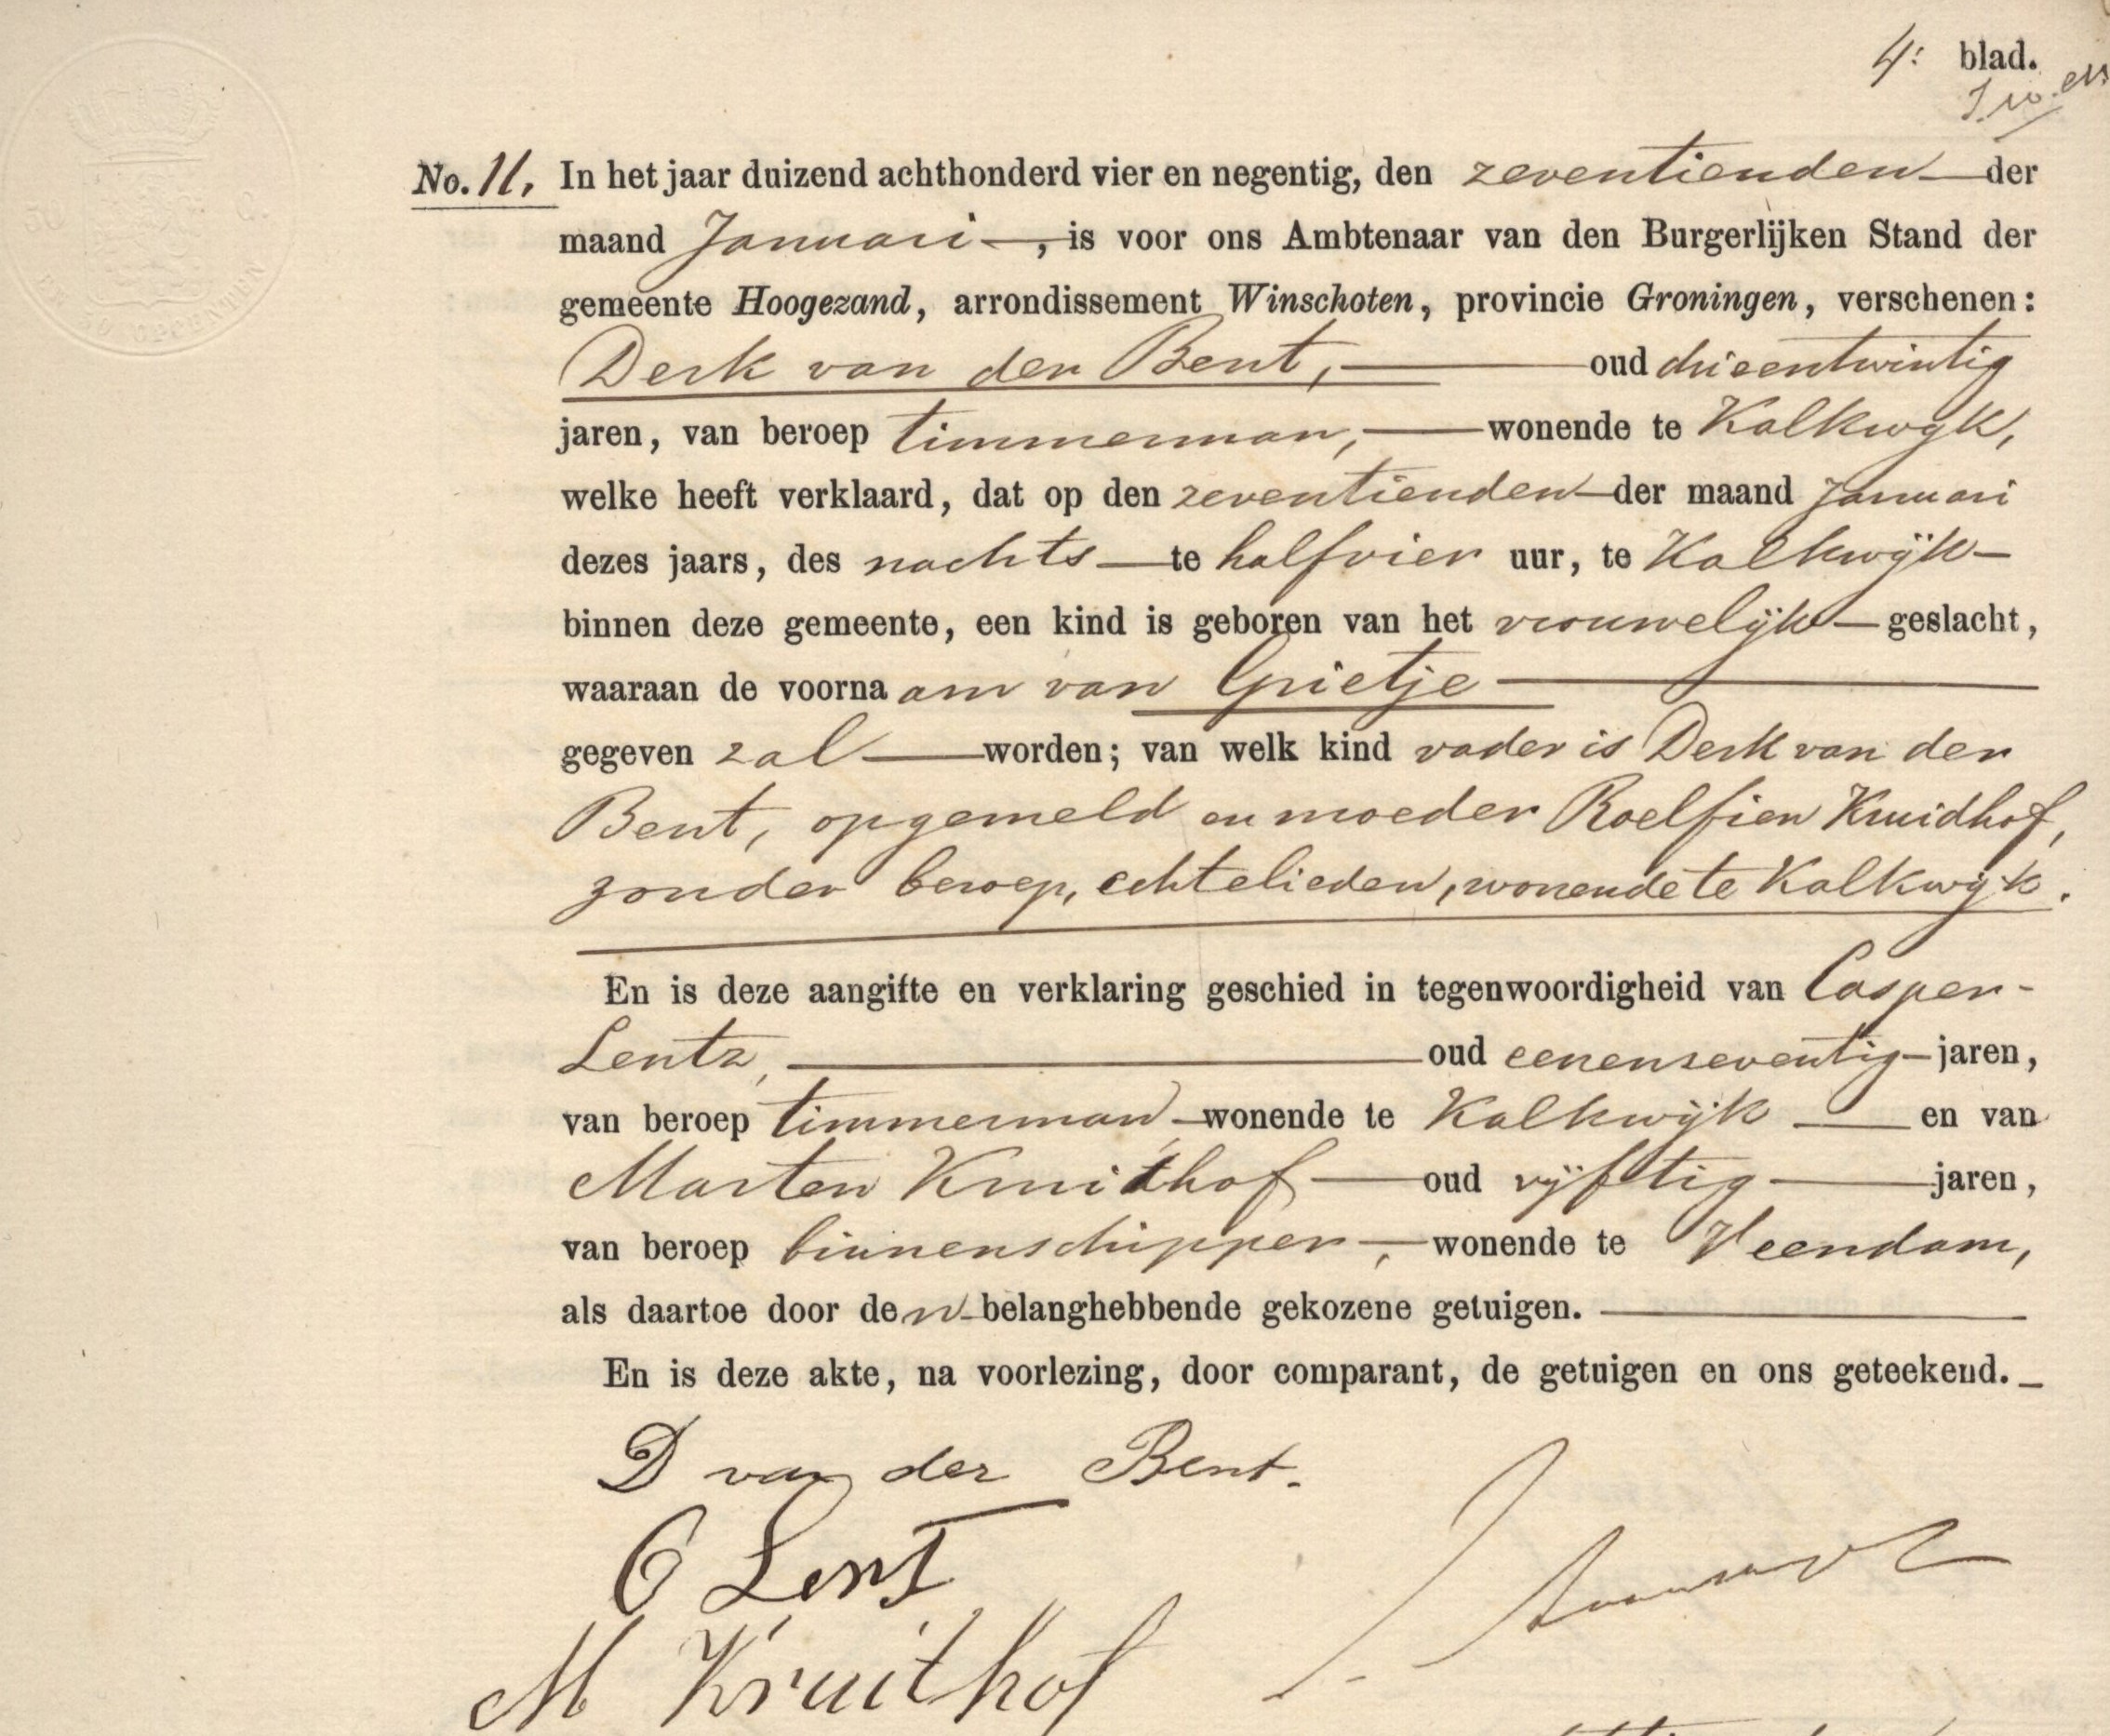 4e blad.
No. 11. In het jaar duizend achthonderd vier en negentig, den zeventienden der
maand Januari, is voor ons Ambtenaar van den Burgerlijken Stand der
gemeente Hoogezand, arrondissement Winschoten, provincie Groningen, verschenen:
Derk van der Bent, oud drieentwintig
jaren, van beroep timmerman, wonende te Kalkwyk,
welke heeft verklaard, dat op den zeventienden der maand Januari
dezes jaars, des nachts te halfvier uur, te Kalkwijk
binnen deze gemeente, een kind is geboren van het vrouwelijk geslacht,
waaraan de voornaam van Grietje
gegeven zal worden; van welk kind vader is Derk van der
Bent, opgemeld en moeder Roelfien Kruidhof,
zonder beroep, echtelieden, wonende te Kalkwijk.
En is deze aangifte en verklaring geschied in tegenwoordigheid van Casper
Lentz, oud eenenzeventig jaren,
van beroep timmerman wonende te Kalkwijk en van
Marten Kruithof oud vijftig jaren,
van beroep binnenschipper, wonende te Veendam,
als daartoe door den belanghebbende gekozene getuigen.
En is deze akte, na voorlezing, door comparant, de getuigen en ons geteekend.
D van der Bent.
C Lent
M Kruithof